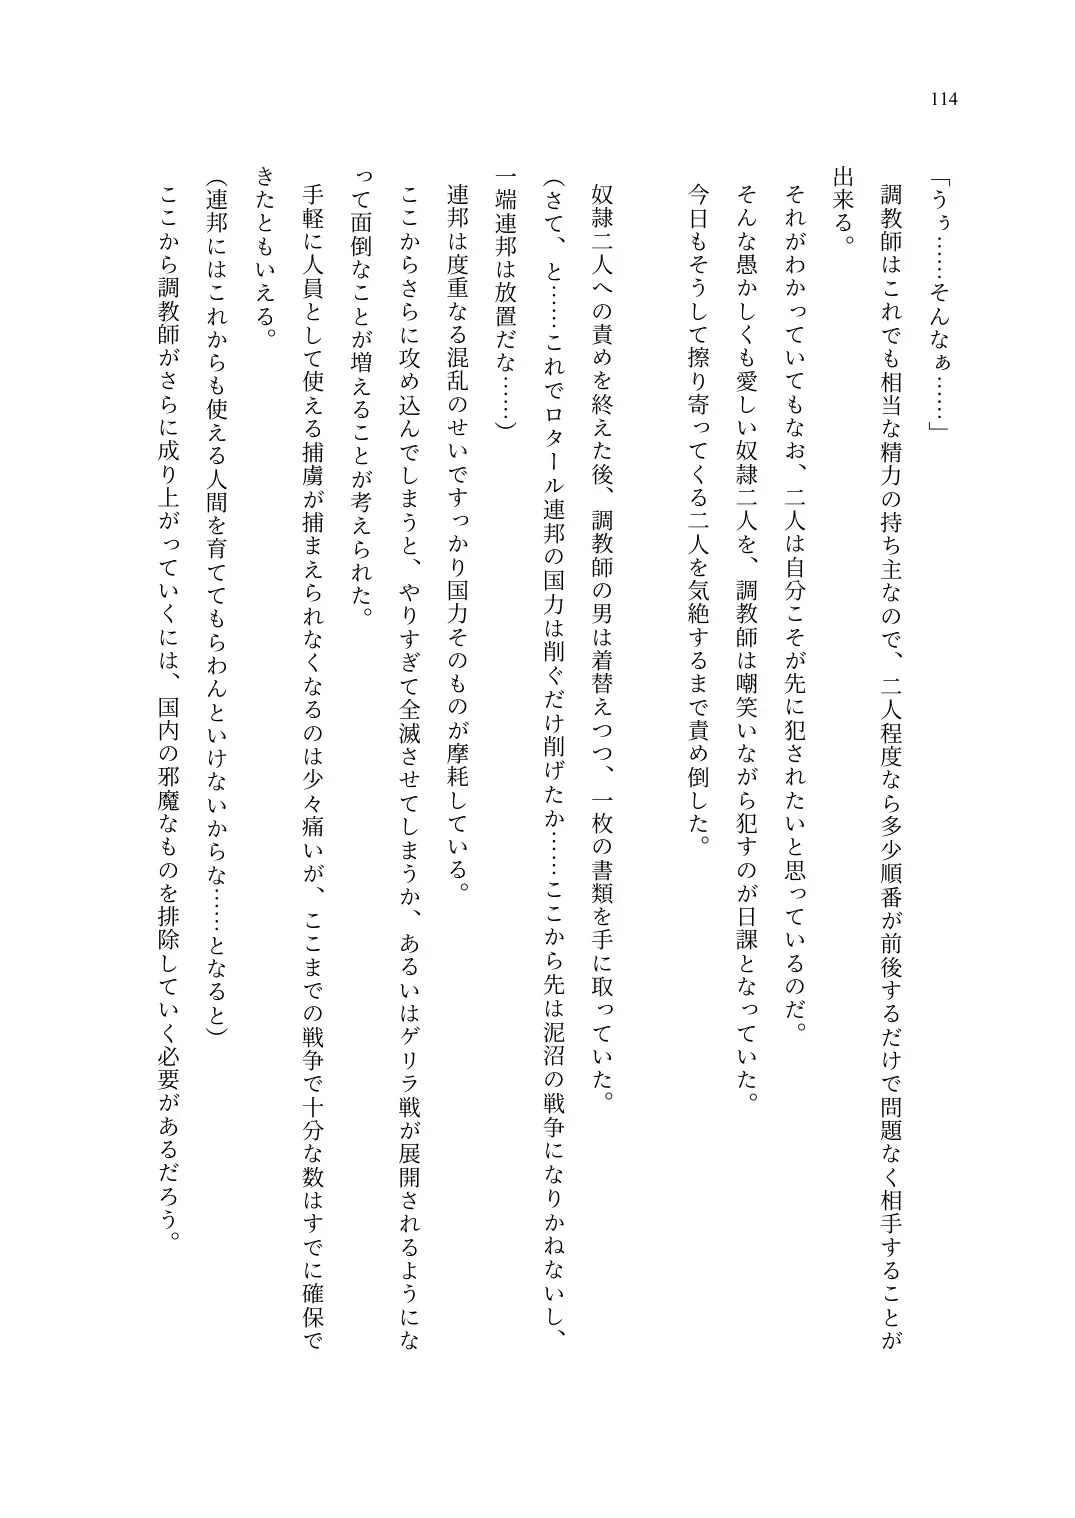 114
「うぅ……そんなぁ……」
調教師はこれでも相当な精力の持ち主なので、二人程度なら多少順番が前後するだけで問題なく相手することが
出来る。
それがわかっていてもなお、二人は自分こそが先に犯されたいと思っているのだ。
そんな愚かしくも愛しい奴隷二人を、調教師は嘲笑いながら犯すのが日課となっていた。
今日もそうして擦り寄ってくる二人を気絶するまで責め倒した。
奴隷二人への責めを終えた後、調教師の男は着替えつつ、一枚の書類を手に取っていた。
(さて、と……これでロタール連邦の国力は削ぐだけ削げたか……ここから先は泥沼の戦争になりかねないし、
一端連邦は放置だな……)
連邦は度重なる混乱のせいですっかり国力そのものが摩耗している。
ここからさらに攻め込んでしまうと、やりすぎて全滅させてしまうか、あるいはゲリラ戦が展開されるようにな
って面倒なことが増えることが考えられた。
手軽に人員として使える捕虜が捕まえられなくなるのは少々痛いが、ここまでの戦争で十分な数はすでに確保で
きたともいえる。
(連邦にはこれからも使える人間を育ててもらわんといけないからな……となると)
ここから調教師がさらに成り上がっていくには、国内の邪魔なものを排除していく必要があるだろう。